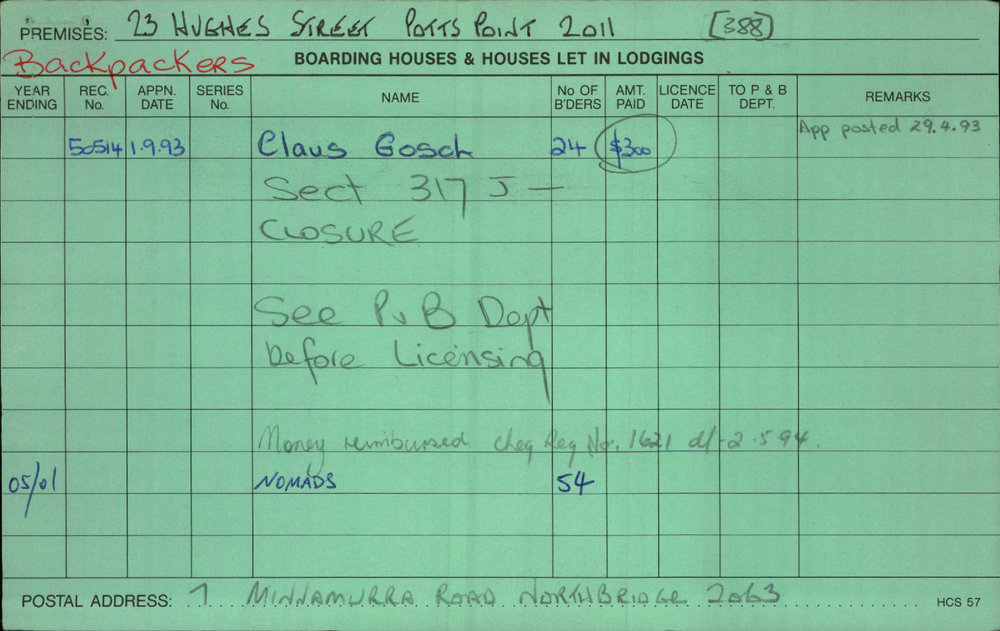 PREMISES: 23 HUGHES STREET POTTS POINT 2011 [388]
Backpackers BOARDING HOUSES & HOUSES LET IN LODGINGS
YEAR ENDING REC. No. APPN. DATE SERIES No. NAME No OF B'DERS AMT. PAID LICENCE DATE TO P & B DEPT. REMARKS
App posted 29.4.93
50514 1.9.93 Claus Gosch 24 $300
Sect 317 J —
CLOSURE
See P v B Dept
before Licensing
Money reimbursed cheq Req No. 1621 d/- 2.5.94.
05/01 NOMADS 54
POSTAL ADDRESS: 7 MINNAMURRA ROAD NORTHBRIDGE 2063 HCS 57